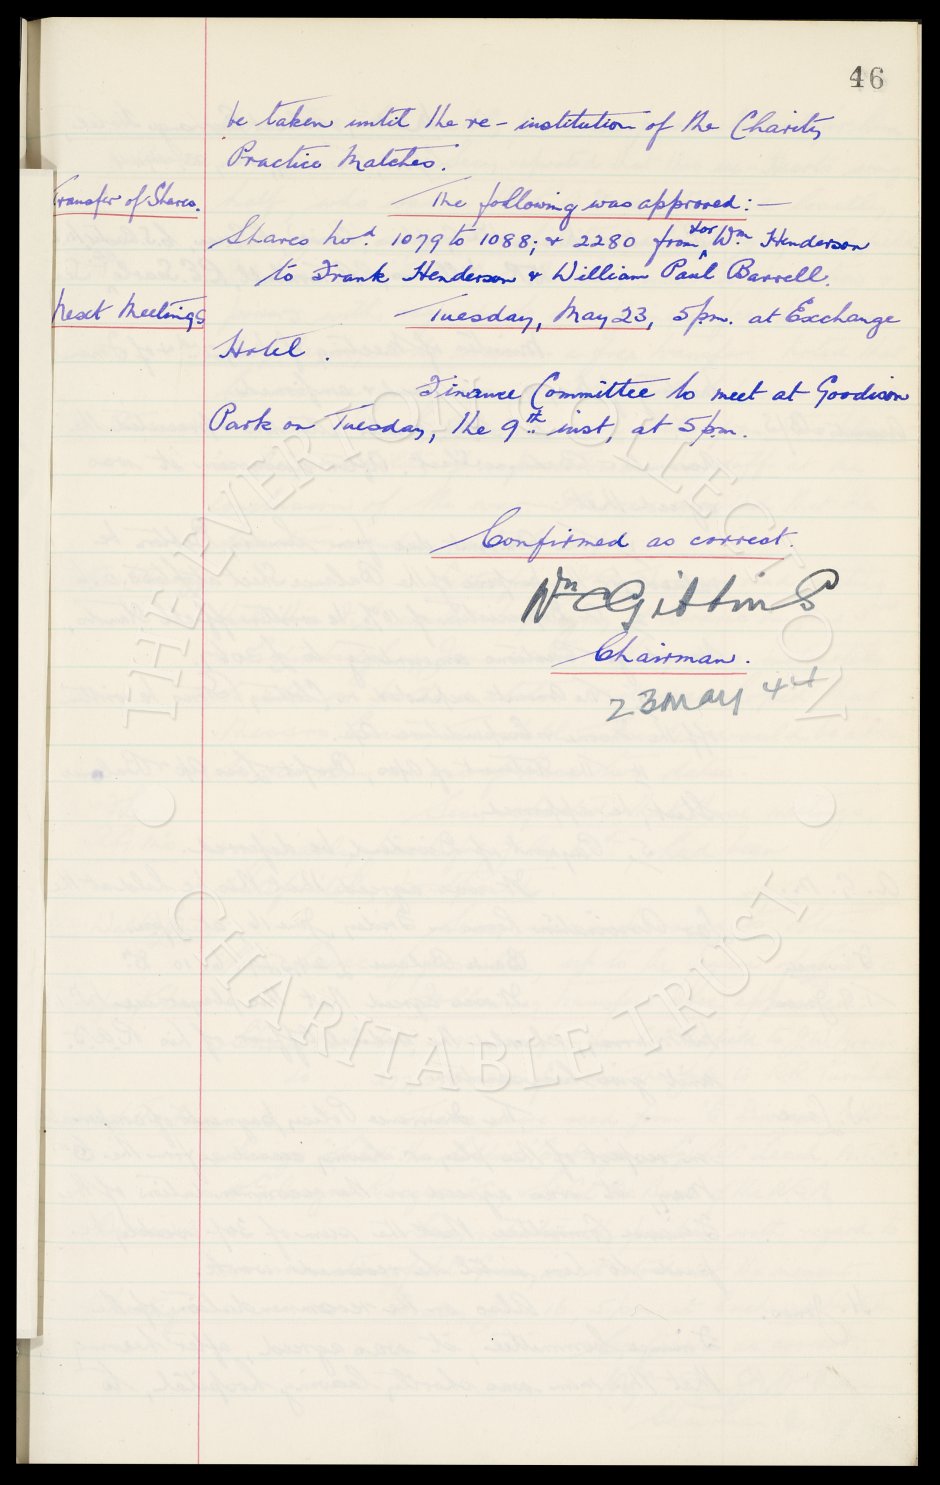 46
be taken until the re-institution of the Charity
Practice Matches.
Transfer of Shares.
The following was approved:—
Shares No.d 1079 to 1088; & 2280 from Wm Henderson
to Frank Henderson & William Paul Barrell.
Next Meetings
Tuesday, May 23, 5pm. at Exchange
Hotel.
Finance Committee to meet at Goodison
Park on Tuesday, the 9th inst, at 5pm.
Confirmed as correct.
Wm C Gibbins
Chairman.
23 May 44
THE EVERTON COLLECTION
CHARITABLE TRUST